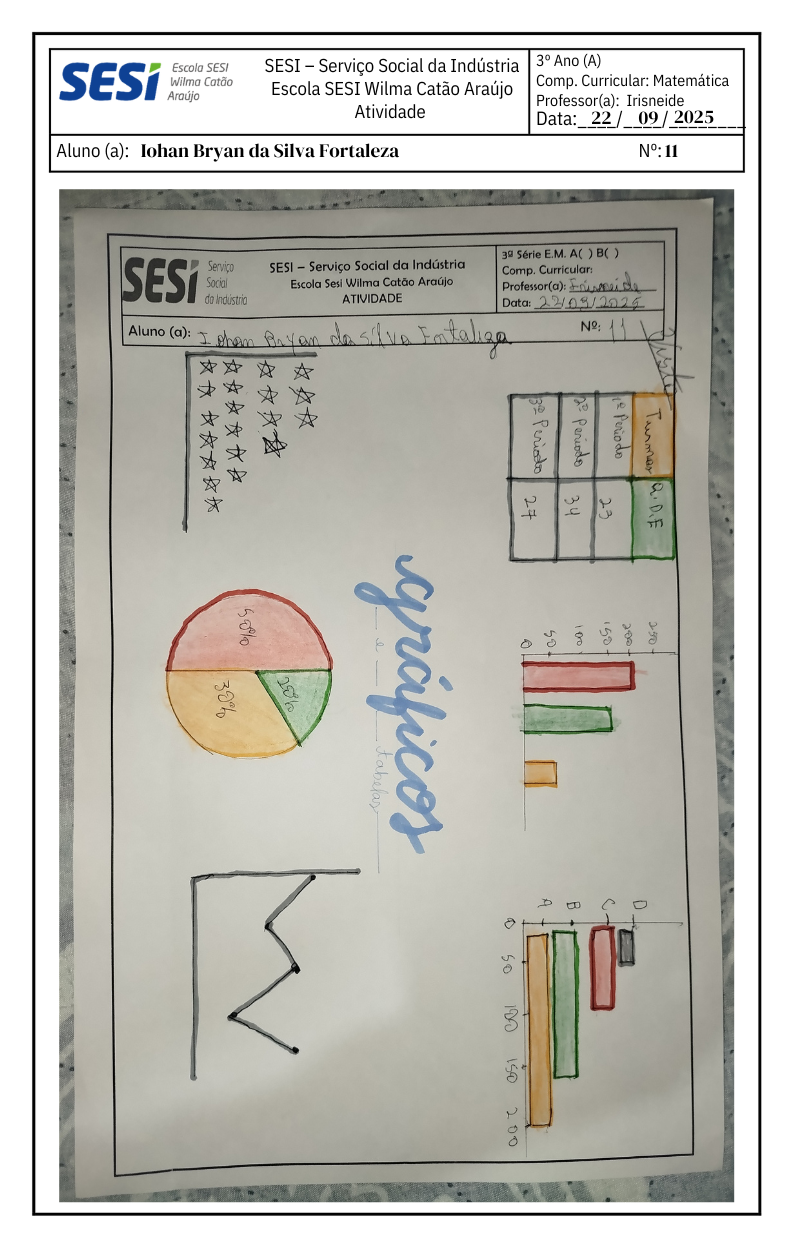 SESI
Escola SESI
Wilma Catão
Araújo
SESI – Serviço Social da Indústria
Escola SESI Wilma Catão Araújo
Atividade
3º Ano (A)
Comp. Curricular: Matemática
Professor(a): Irisneide
Data: 22 / 09 / 2025
Aluno (a): Iohan Bryan da Silva Fortaleza
Nº: 11
SESI
Serviço
Social
da Indústria
SESI – Serviço Social da Indústria
Escola Sesi Wilma Catão Araújo
ATIVIDADE
3ª Série E.M. A( ) B( )
Comp. Curricular:
Professor(a): Irisneide
Data: 22/09/2025
Aluno (a): Iohan Bryan da Silva Fortaliza
Nº: 11
Visto
Turmas Q.D.E
1º Periodo 23
2º Periodo 34
3º Periodo 27
gráficos
e
tabelas
250
200
150
100
50
0
50%
20%
30%
D
C
B
A
0
50
100
150
200